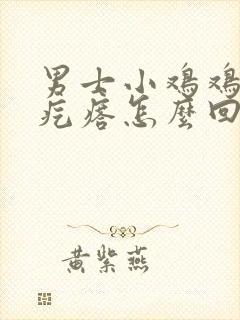 男士小鸡鸡
疙瘩怎麼回
黄紫燕